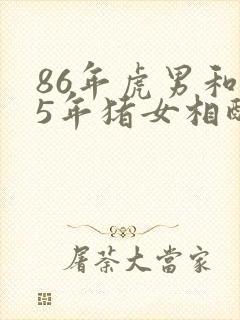 86年虎男和
5年猪女相配
屠苏大當家